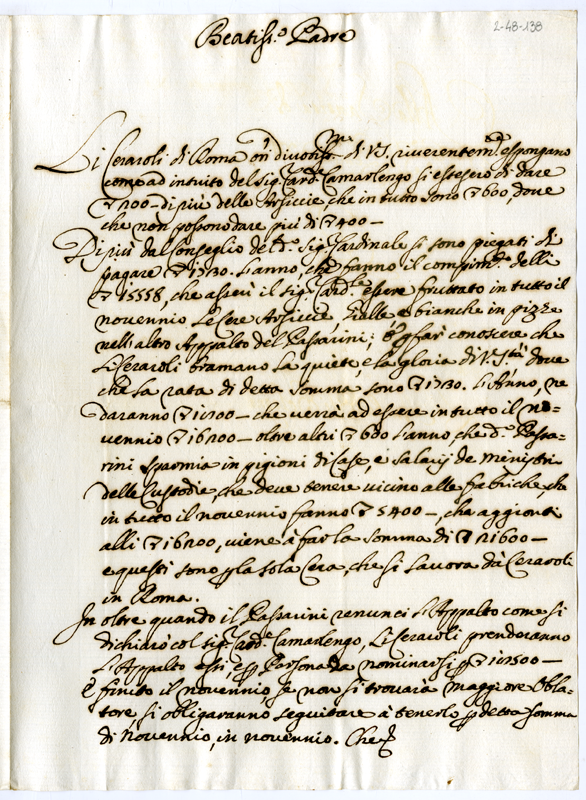 2-48-138
Beatiss.º Padre
Li Ceraroli di Roma Or.i divotiss.mi di V.S. riverentem.te espongano
come ad intuito del Sig. Card. Camarlengo si estesero di dare
200 - di più delle Arsiccie, che in tutto sono 600, dove
che non possono dare più di 400 -
Di più dal Conseglio del d.º Sig. Cardinale si sono piegati di
pagare 1730. l'anno, che fanno il compim.to delli
15558, che asserì il Sig. Card.le essere fruttato in tutto il
novennio le Cere Arsiccie Gialle e bianche in pizze
nell'altro Appalto del Passarini; far conoscere che
li Ceraroli bramano la quiete, e la gloria di V. S.tà dove
che la rata di detta somma sono 1730. l'Anno, ne
daranno - che verrà ad essere in tutto il no-
vennio 16200 - oltre altri 600 l'anno che d.º Passa-
rini sparmia in pigioni di Case, e Salarij de Ministri
delle Custodie, che deve tenere vicino alle fabriche, che
in tutto il novennio fanno 5400 -, che aggionti
alli 16200, viene à far la somma di 21600 -
e questi sono p la sola Cera, che si lavora dà Ceraroli
in Roma.
In oltre quando il Passarini renunci l'Appalto come si
dichiarò col Sig. Card.e Camarlengo, li Ceraroli prenderanno
l'Appalto essi, ò Persona da nominarsi p -
E finito il novennio, se non si trovarà maggiore Obla-
tore, si obligaranno seguitare à tenerlo p detta somma
di Novennio, in novennio. Che